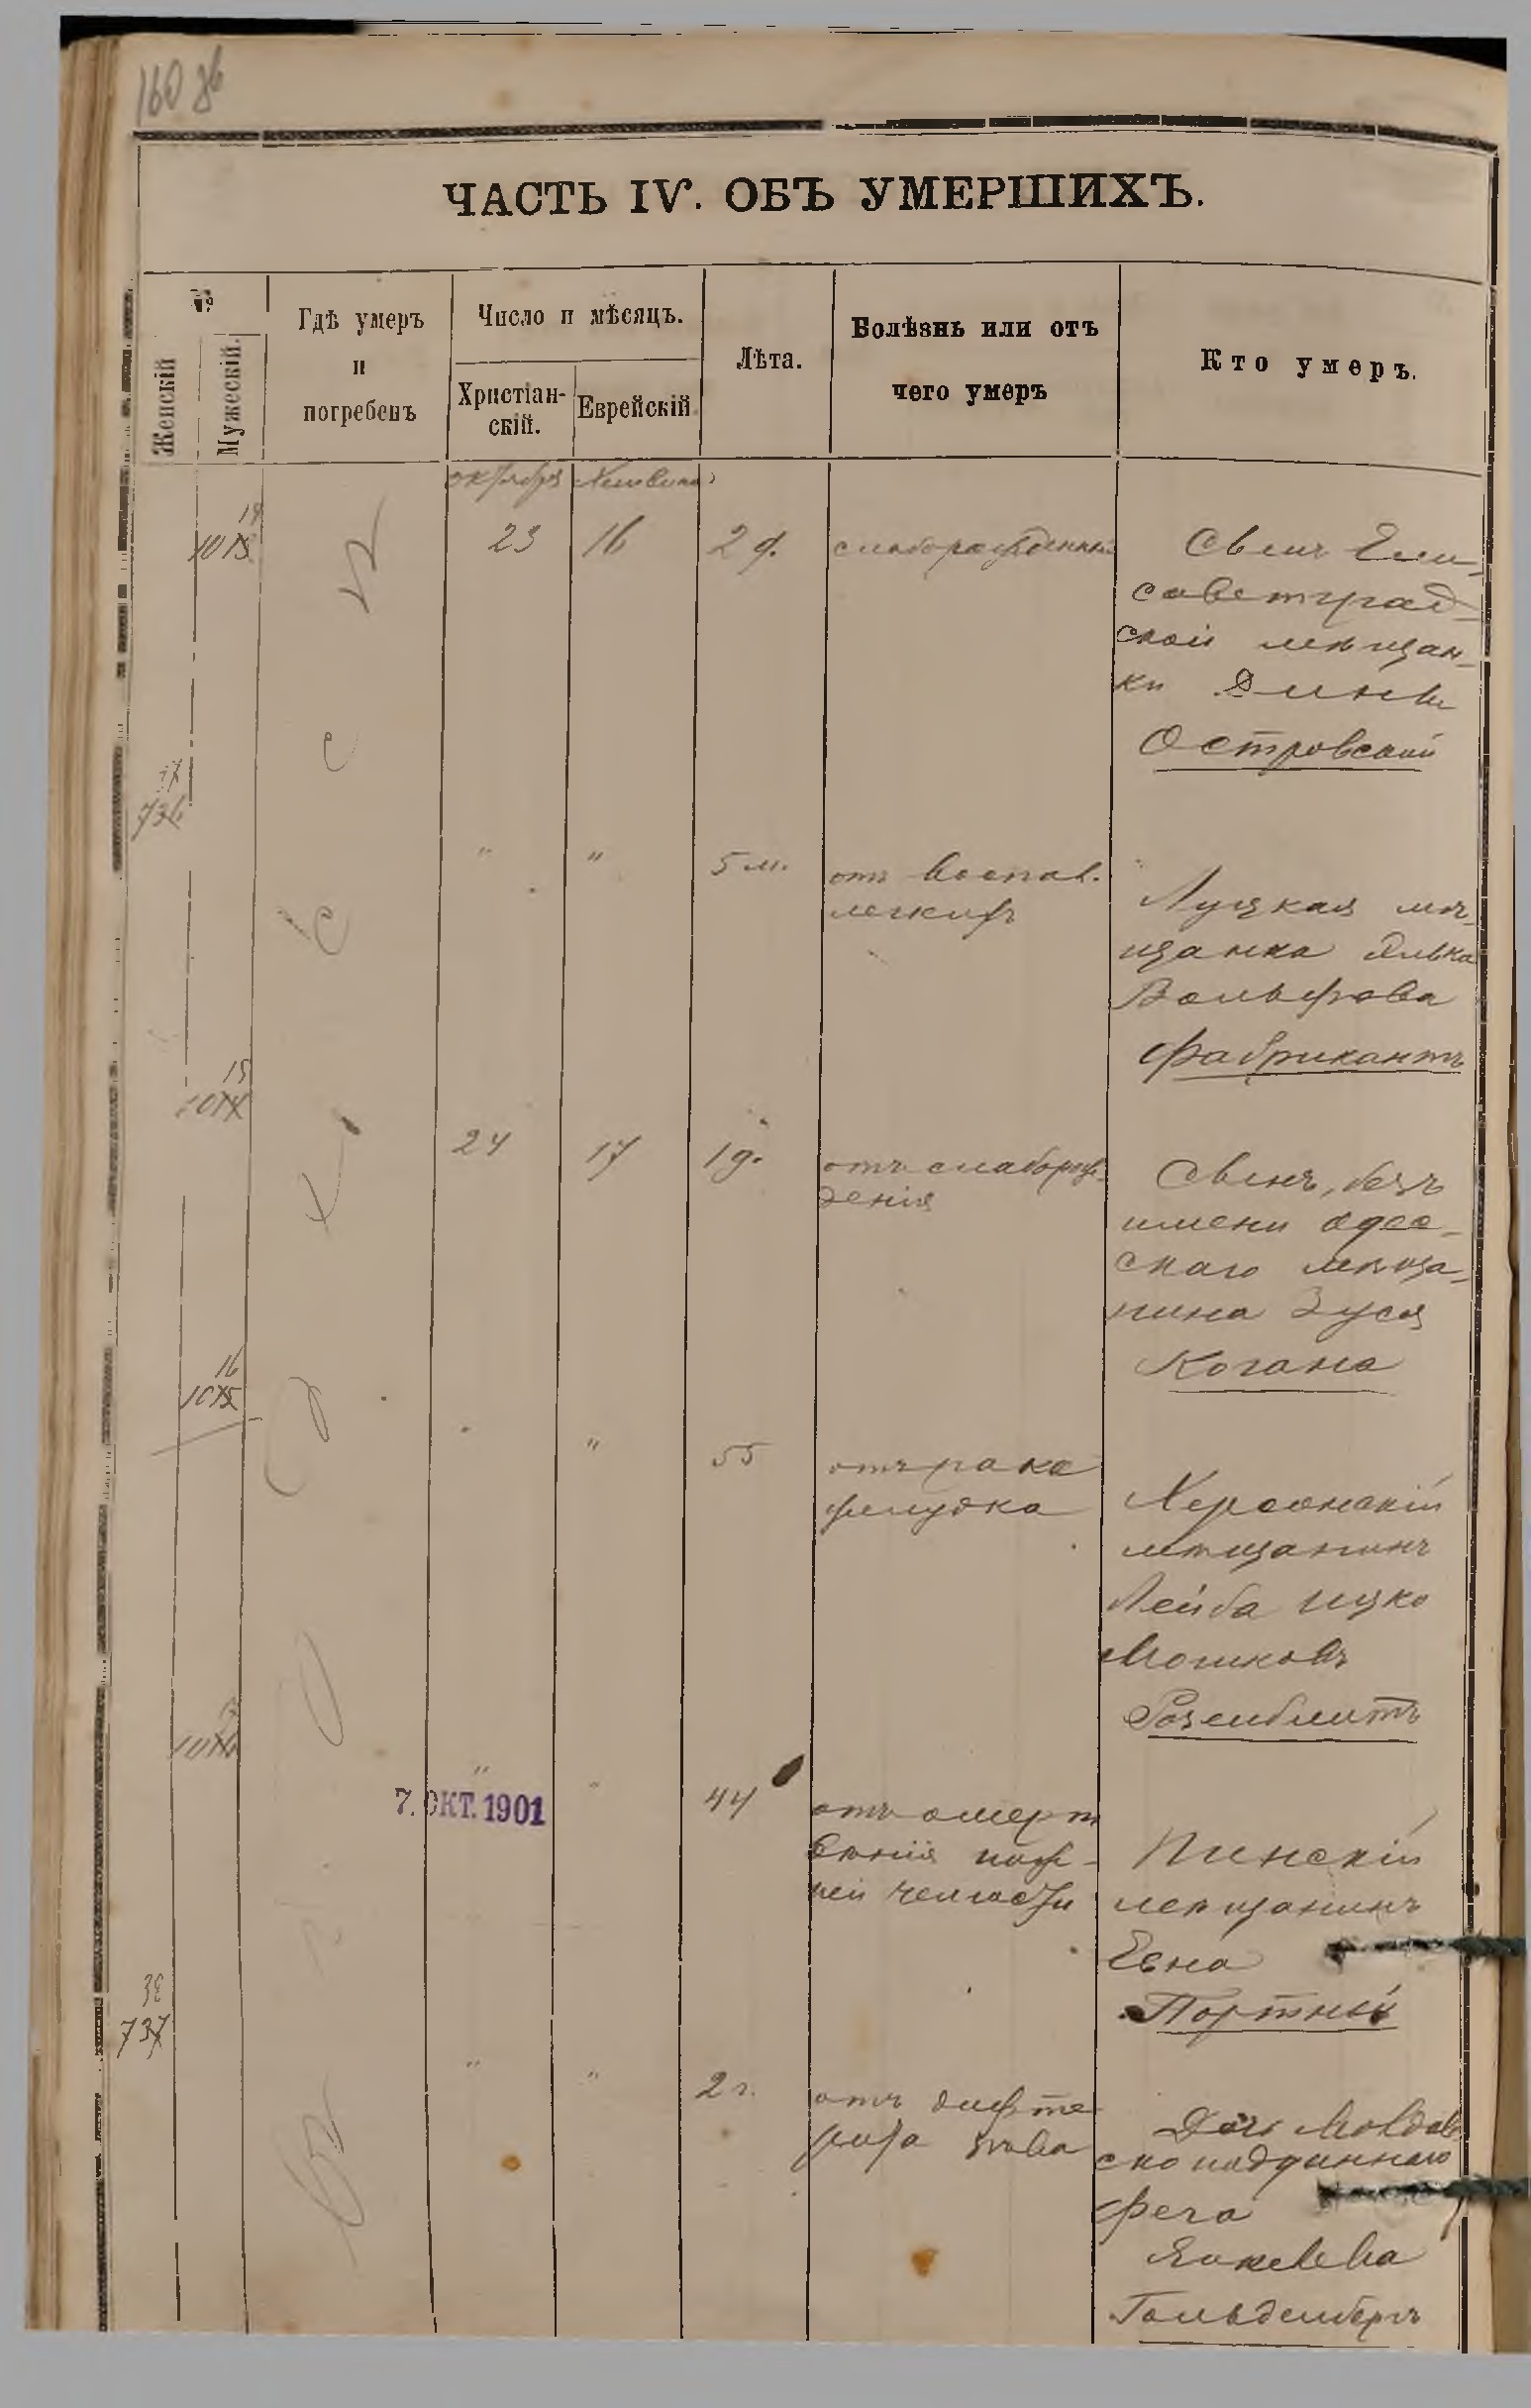 160 об
ЧАСТЬ IV. ОБЪ УМЕРШИХЪ.
№
Женскій
Мужескій.
Гдѣ умеръ
и
погребенъ
Число и мѣсяцъ.
Христіан-
скій.
Еврейскій
Лѣта.
Болѣзнь или отъ
чего умеръ
Кто умеръ.
октября
23
16
2 д.
слаборожденный
Сынъ Ели-
саветград-
ской мѣщан-
ки
Островскій
37
736
"
"
5 м.
отъ воспал.
легкихъ
Луцкая мѣ-
щанка
Вольфова
Фабрикантъ
15
24
17
1 д.
отъ слаборож-
денія
Сынъ, безъ
имени одес-
скаго мѣща-
нина Зуся
Когана
16
"
55
отъ рака
желудка
Херсонскій
мѣщанинъ
Лейба Ицко
Мошковъ
Розенблитъ
"
"
7. ОКТ. 1901
44
отъ омерт
вѣнія ниж-
ней челюсти
Пинскій
мѣщанинъ
Евна
Портный
38
737
"
"
2 г.
отъ дифте-
рита зѣва
Дочь Молдав
скоподданнаго
Фега
Янкелева
Гольденбергъ